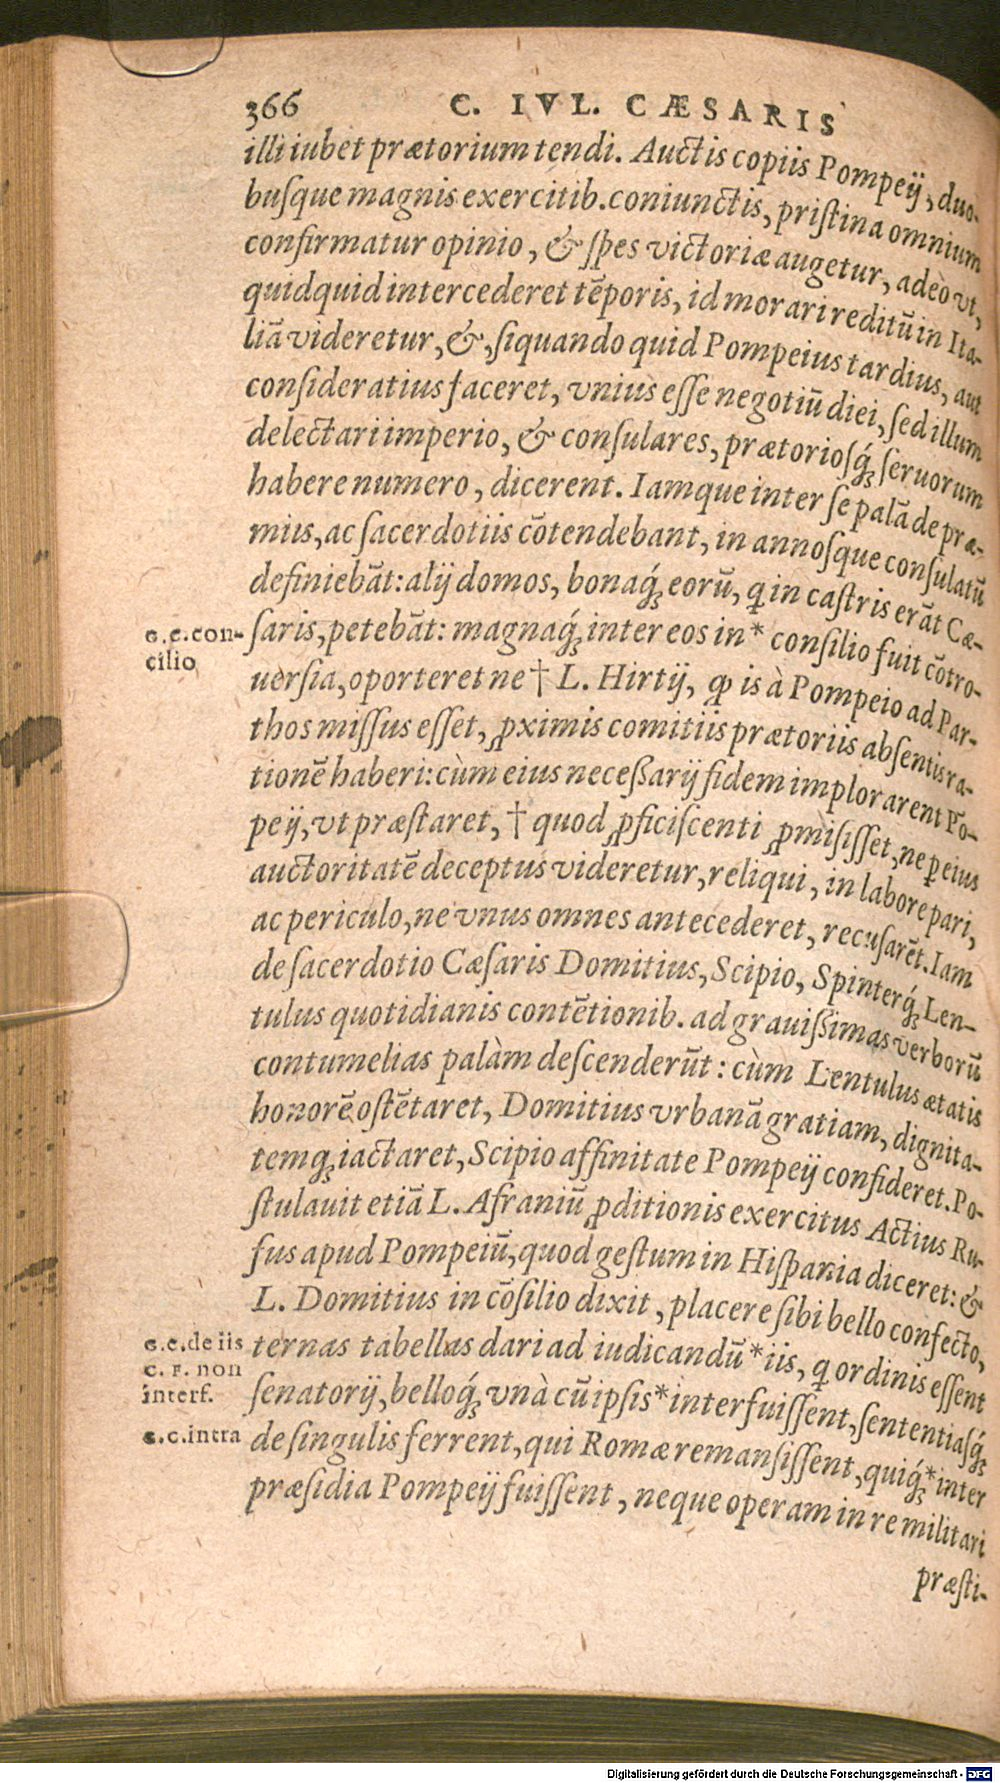 366 C. IVL. CÆSARIS
illi iubet prætorium tendi. Auctis copiis Pompeij, duo-
busque magnis exercitib. coniunctis, pristina omnium
confirmatur opinio, & spes victoriæ augetur, adeò vt,
quidquid intercederet tēporis, id morari reditū in Ita-
liā videretur, &, siquando quid Pompeius tardius, aut
consideratius faceret, vnius esse negotiū diei, sed illum
delectari imperio, & consulares, prætoriosq́; seruorum
habere numero, dicerent. Iamque inter se palā de præ-
miis, ac sacerdotiis cōtendebant, in annosque consulatū
definiebāt: alij domos, bonaq́; eorū, q in castris erāt Cæ-
saris, petebāt: magnaq́; inter eos in* consilio fuit cōtro-
G.C. con-
cilio
uersia, oporteret ne † L. Hirtij, ꝙ is à Pompeio ad Par-
thos missus esset, ꝓximis comitiis prætoriis absentis ra-
tionē haberi: cùm eius necessarij fidem implorarent Pō-
peij, vt præstaret, † quod ꝓficiscenti ꝓmisisset, ne ꝑ eius
auctoritatē deceptus videretur, reliqui, in labore pari,
ac periculo, ne vnus omnes antecederet, recusarēt. Iam
de sacerdotio Cæsaris Domitius, Scipio, Spinterq́; Len-
tulus quotidianis contētionib. ad grauissimas verborū
contumelias palàm descenderūt: cùm Lentulus ætatis
honorē ostētaret, Domitius vrbanā gratiam, dignita-
temq; iactaret, Scipio affinitate Pompeij confideret. Po-
stulauit etiā L. Afraniū ꝓditionis exercitus Actius Ru-
fus apud Pompeiū, quod gestum in Hispania diceret: &
L. Domitius in cōsilio dixit, placere sibi bello confecto,
ternas tabellas dari ad iudicandū *iis, q ordinis essent
G.C. de iis
C. F. non
interf.
senatorij, belloq́; vnà cū ipsis* interfuissent, sententiasq́;
de singulis ferrent, qui Romæ remansissent, quiq́; *inter
G.C. intra
præsidia Pompeij fuissent, neque operam in re militari
præsti-
Digitalisierung gefördert durch die Deutsche Forschungsgemeinschaft - DFG